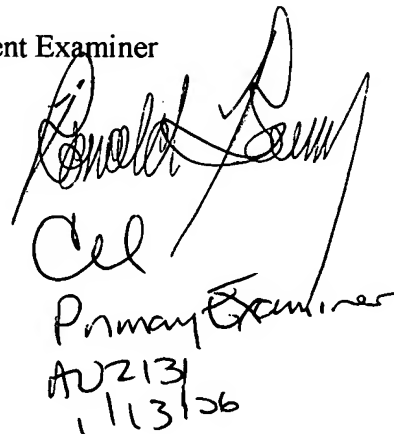 ent Examiner
Ronald
Primary Examiner
AU2131
1/13/06